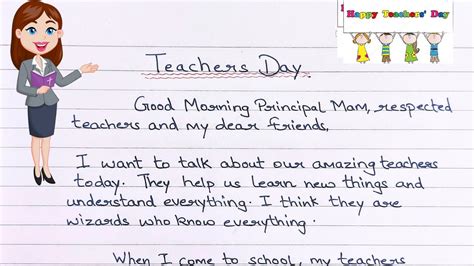 Happy Teachers' Day
Teachers Day
Good Morning Principal Mam, respected
teachers and my dear friends,
I want to talk about our amazing teachers
today. They help us learn new things and
understand everything. I think they are
wizards who know everything.
When I come to school, my teachers